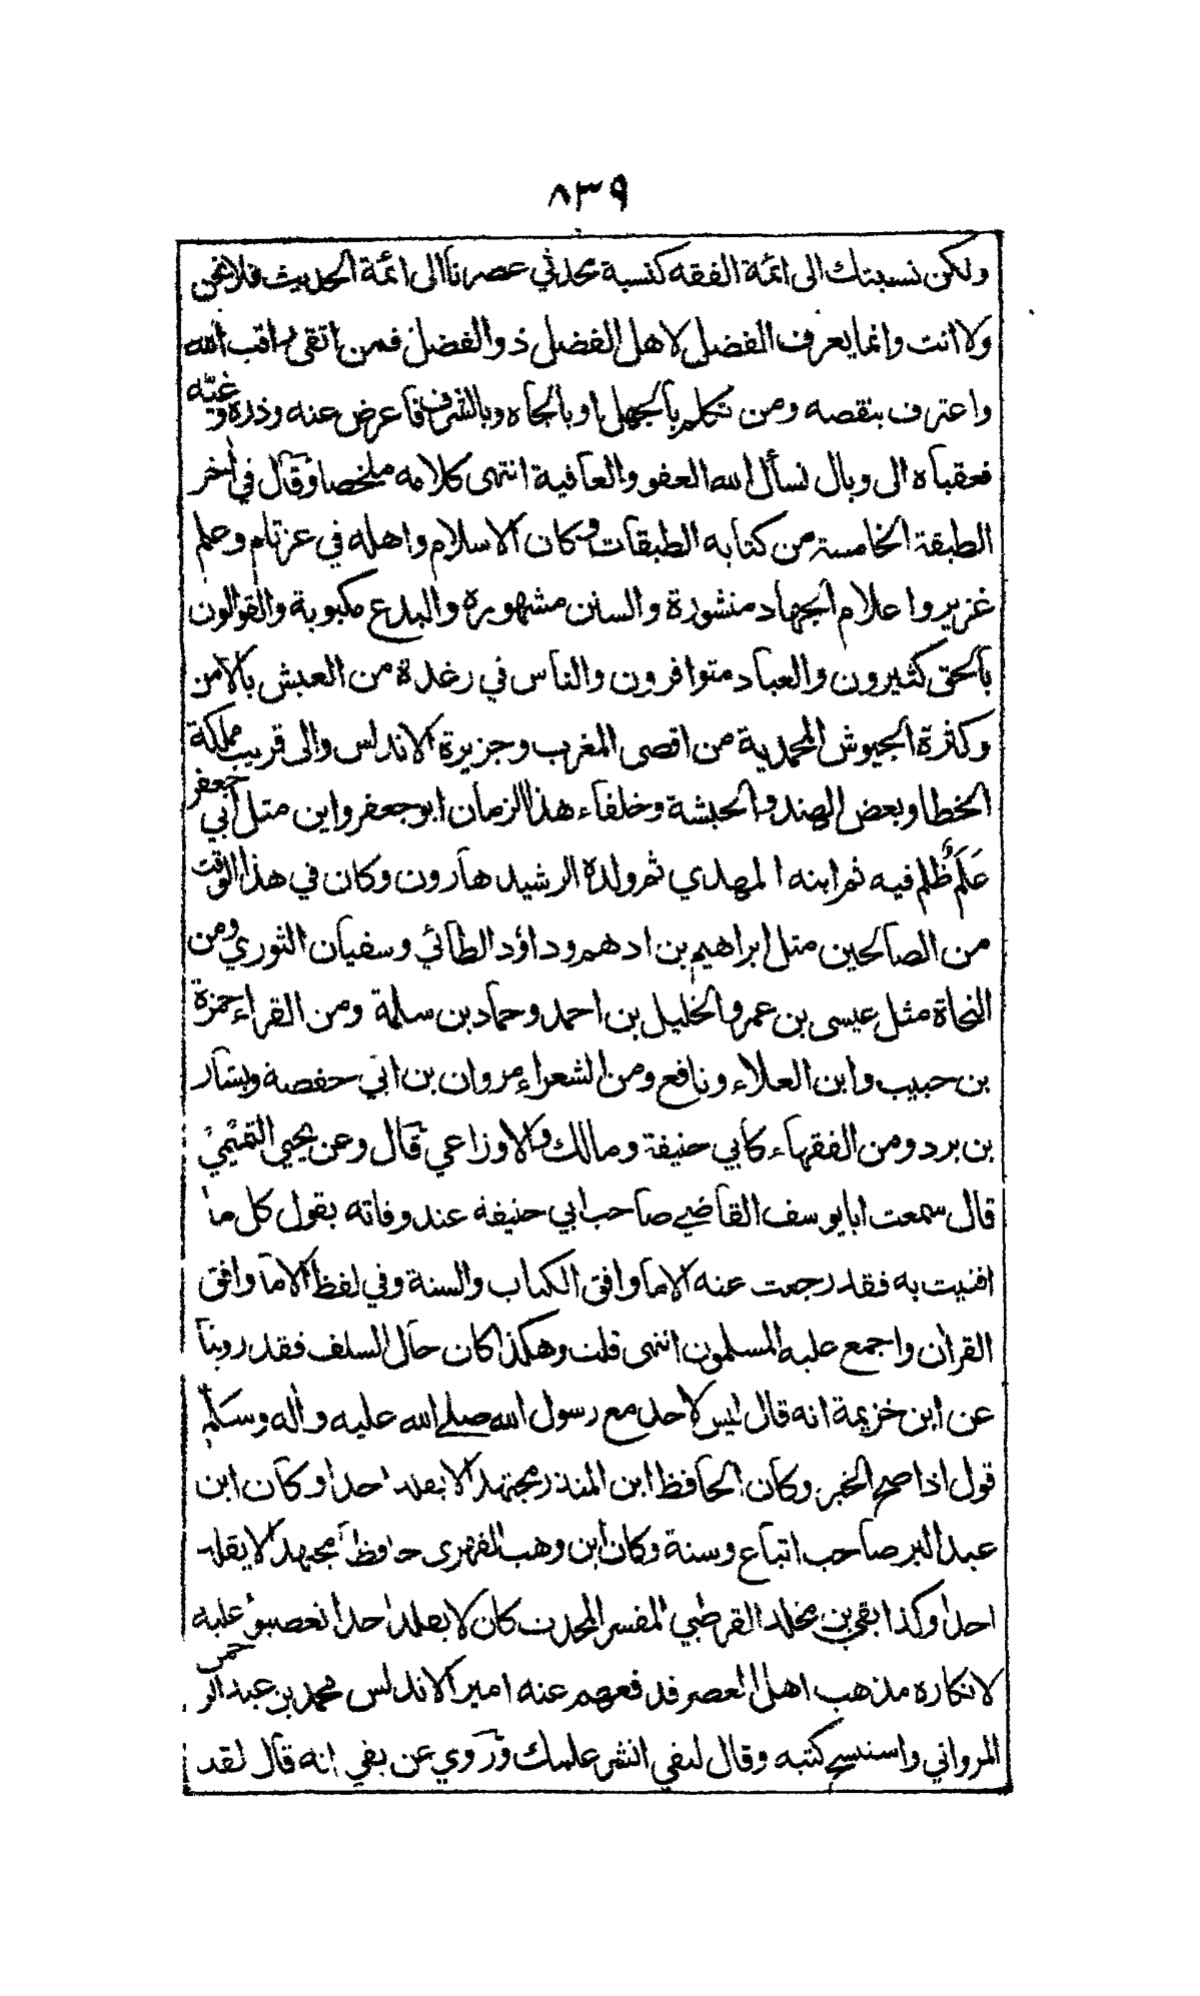 ٨٣٩
ولكن نسبتك الى ائمة الفقه كنسبة محدثي عصرنا الى ائمة الحديث فلا نحن
ولا انت وانما يعرف الفضل لاهل الفضل ذو الفضل فمن اتقى راقب الله
واعترف بنقصه ومن تكلم بالجهل او بالجاه وبالشر فاعرض عنه وذره وغيّه
فعقباه الى وبال نسأل الله العفو والعافية انتهى كلامه ملخصا وقال في اخر
الطبقة الخامسة من كتابه الطبقات وكان الاسلام واهله في عز تام وعلم
غزير واعلام الجهاد منشورة والسنن مشهورة والبدع مكبوبة والقوالون
بالحق كثيرون والعباد متوافرون والناس في رغدة من العيش بالامن
وكثرة الجيوش المحمدية من اقصى المغرب وجزيرة الاندلس والى قريب مملكة
الخطا وبعض الهند والحبشة وخلفاء هذا الزمان ابو جعفر واين مثل ابي جعفر
عَلَم ظُلم فيه ثم ابنه المهدي ثم ولده الرشيد هارون وكان في هذا الوقت
من الصالحين مثل ابراهيم بن ادهم وداؤد الطائي وسفيان الثوري ومن
النحاة مثل عيسى بن عمر والخليل بن احمد وحماد بن سلمة ومن القراء حمزة
بن حبيب وابن العلاء ونافع ومن الشعراء مروان بن ابي حفصة وبشار
بن برد ومن الفقهاء كابي حنيفة ومالك والاوزاعي قال وعن يحيى التميمي
قال سمعت ابا يوسف القاضي صاحب ابي حنيفة عند وفاته يقول كل ما
افتيت به فقد رجعت عنه الا ما وافق الكتاب والسنة وفي لفظ الا ما وافق
القرآن واجمع عليه المسلمون انتهى قلت وهكذا كان حال السلف فقد روينا
عن ابن خزيمة انه قال ليس لاحد مع رسول الله صلى الله عليه واله وسلم
قول اذا صح الخبر وكان الحافظ ابن المنذر مجتهدا لا يقلد احدا وكان ابن
عبد البر صاحب اتباع وسنة وكان ابن وهب الفهري حافظا مجتهدا لا يقلد
احدا وكذا بقي بن مخلد القرطبي المفسر المحدث كان لا يقلد احدا تعصبوا عليه
لانكاره مذهب اهل العصر فدفعهم عنه امير الاندلس محمد بن عبد الرحمن
المرواني واستنسخ كتبه وقال لبقي انشر علمك وروي عن بقي انه قال لقد